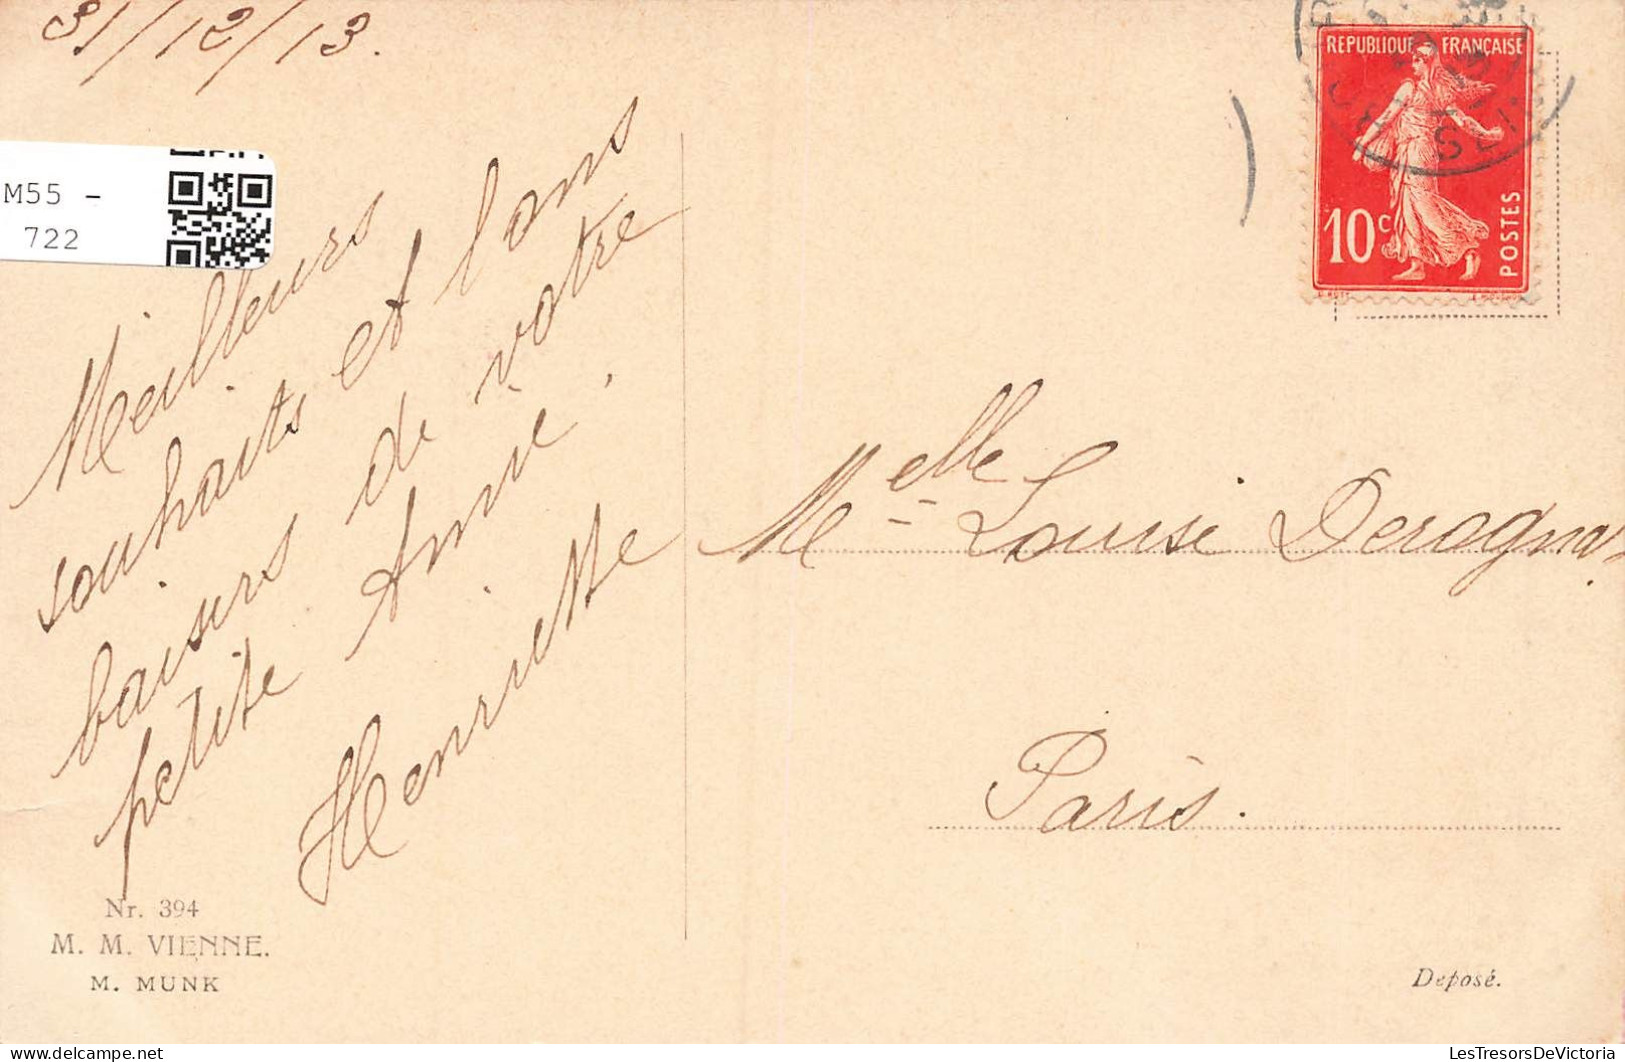 31/12/13.
M55 -
722
Meilleurs
souhaits et bons
baisers de votre
petite Amie.
Henriette
Nr. 394
M. M. VIENNE.
M. MUNK
REPUBLIQUE FRANÇAISE
10 c
POSTES
Melle Louise Deragnat
Paris.
Deposé.
LesTresorsDeVictoria